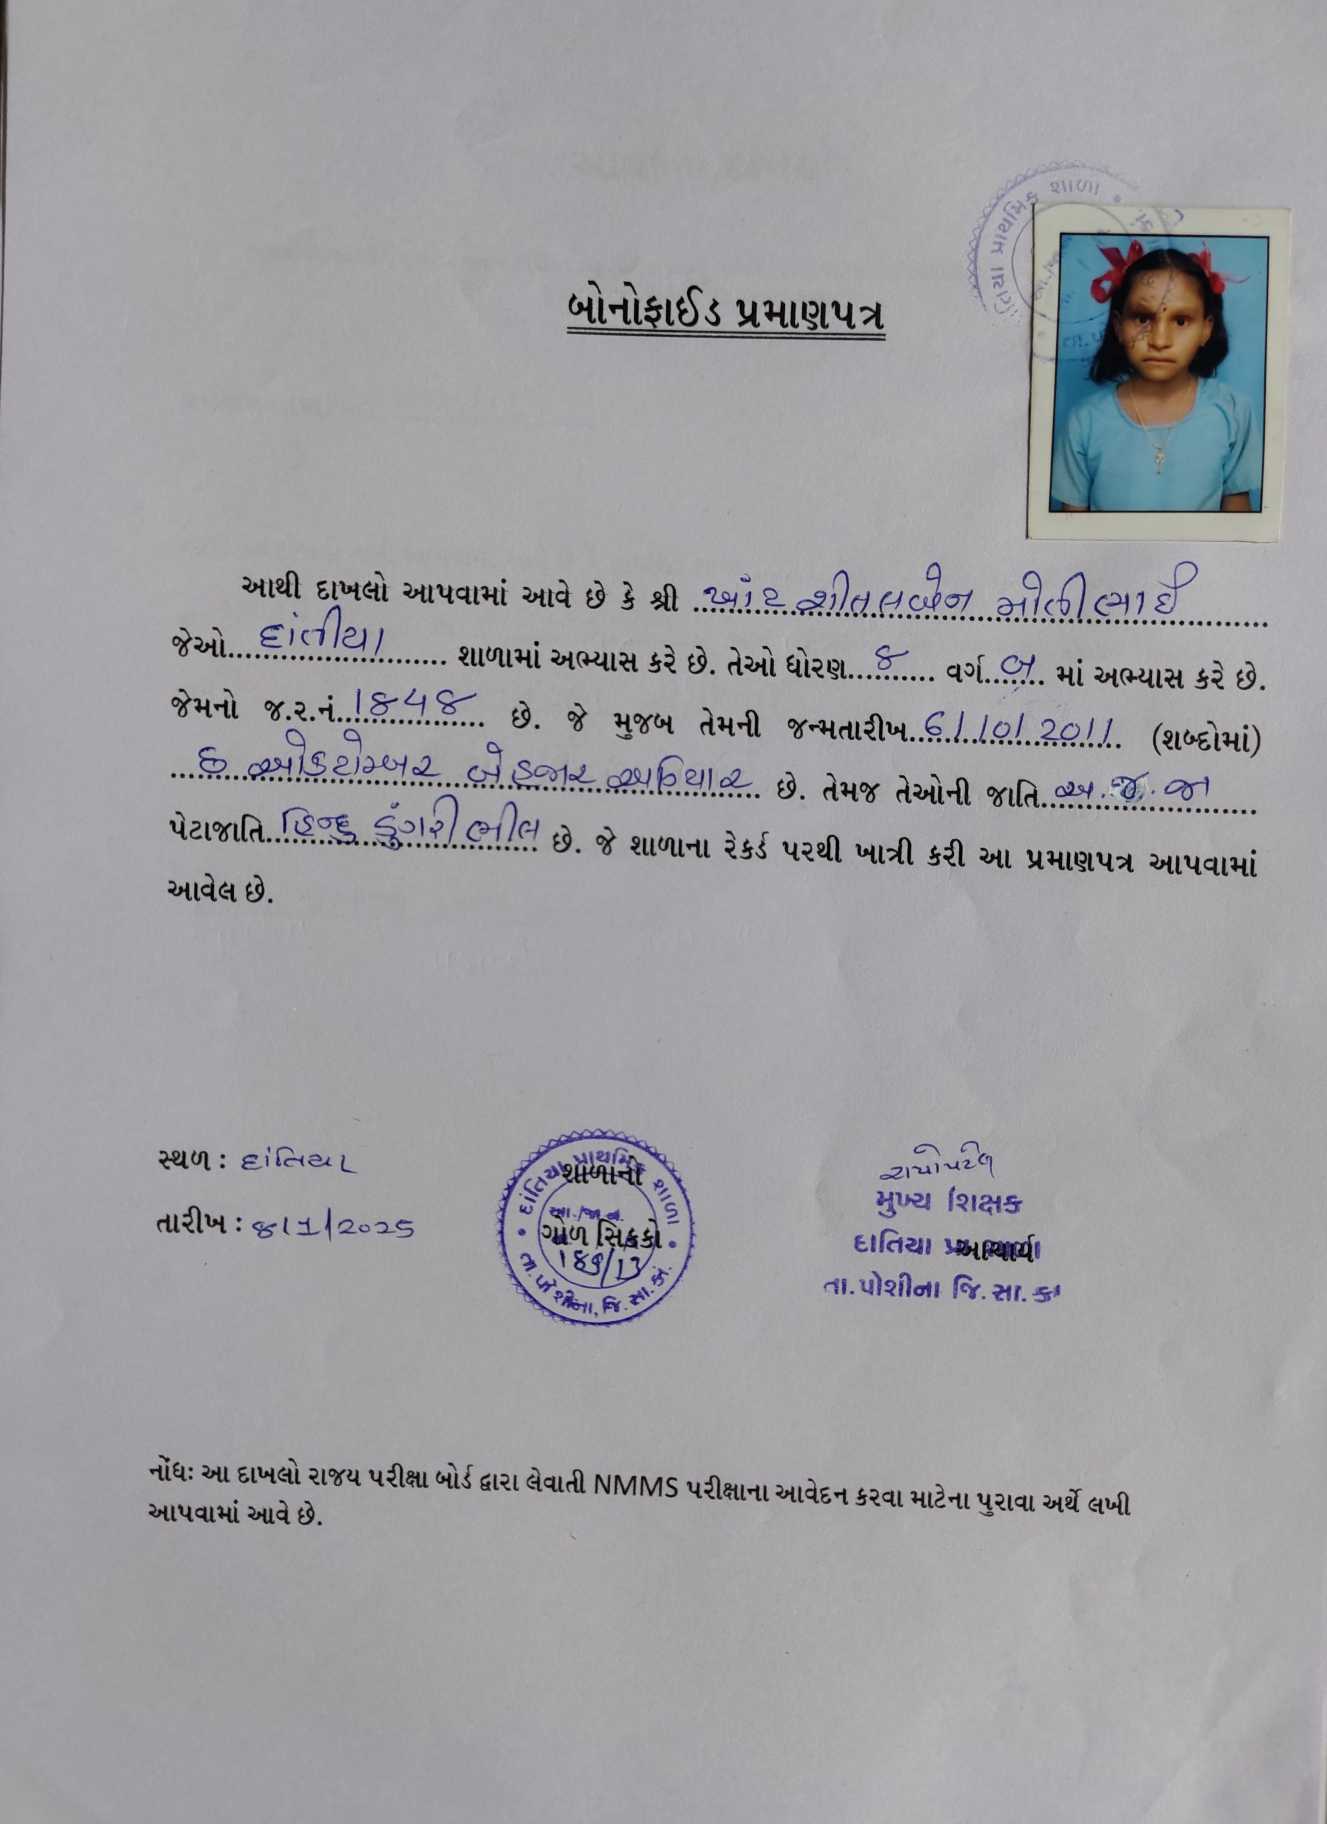 બોનોફાઈડ પ્રમાણપત્ર
પ્રાથમિક શાળા
આથી દાખલો આપવામાં આવે છે કે શ્રી ખાંટ શીતલબેન મોતીભાઈ
જેઓ દાંતીયા શાળામાં અભ્યાસ કરે છે. તેઓ ધોરણ ૮ વર્ગ બ માં અભ્યાસ કરે છે.
જેમનો જ.ર.નં. 1848 છે. જે મુજબ તેમની જન્મતારીખ 6/10/2011 (શબ્દોમાં)
છ ઓક્ટોમ્બર બે હજાર અગિયાર છે. તેમજ તેઓની જાતિ અ.જ.જા
પેટાજાતિ હિન્દુ ડુંગરી ભીલ છે. જે શાળાના રેકર્ડ પરથી ખાત્રી કરી આ પ્રમાણપત્ર આપવામાં
આવેલ છે.
સ્થળ : દાંતિયા
તારીખ : 8/1/2025
દાંતિયા પ્રાથમિક શાળા
શાળાનો
ગોળ સિક્કો
તા.પોશીના, જિ.સા.કાં.
મુખ્ય શિક્ષક
દાતિયા પ્રા શાળા
આચાર્ય
તા.પોશીના જિ.સા.કાં
નોંધઃ આ દાખલો રાજય પરીક્ષા બોર્ડ દ્વારા લેવાતી NMMS પરીક્ષાના આવેદન કરવા માટેના પુરાવા અર્થે લખી
આપવામાં આવે છે.